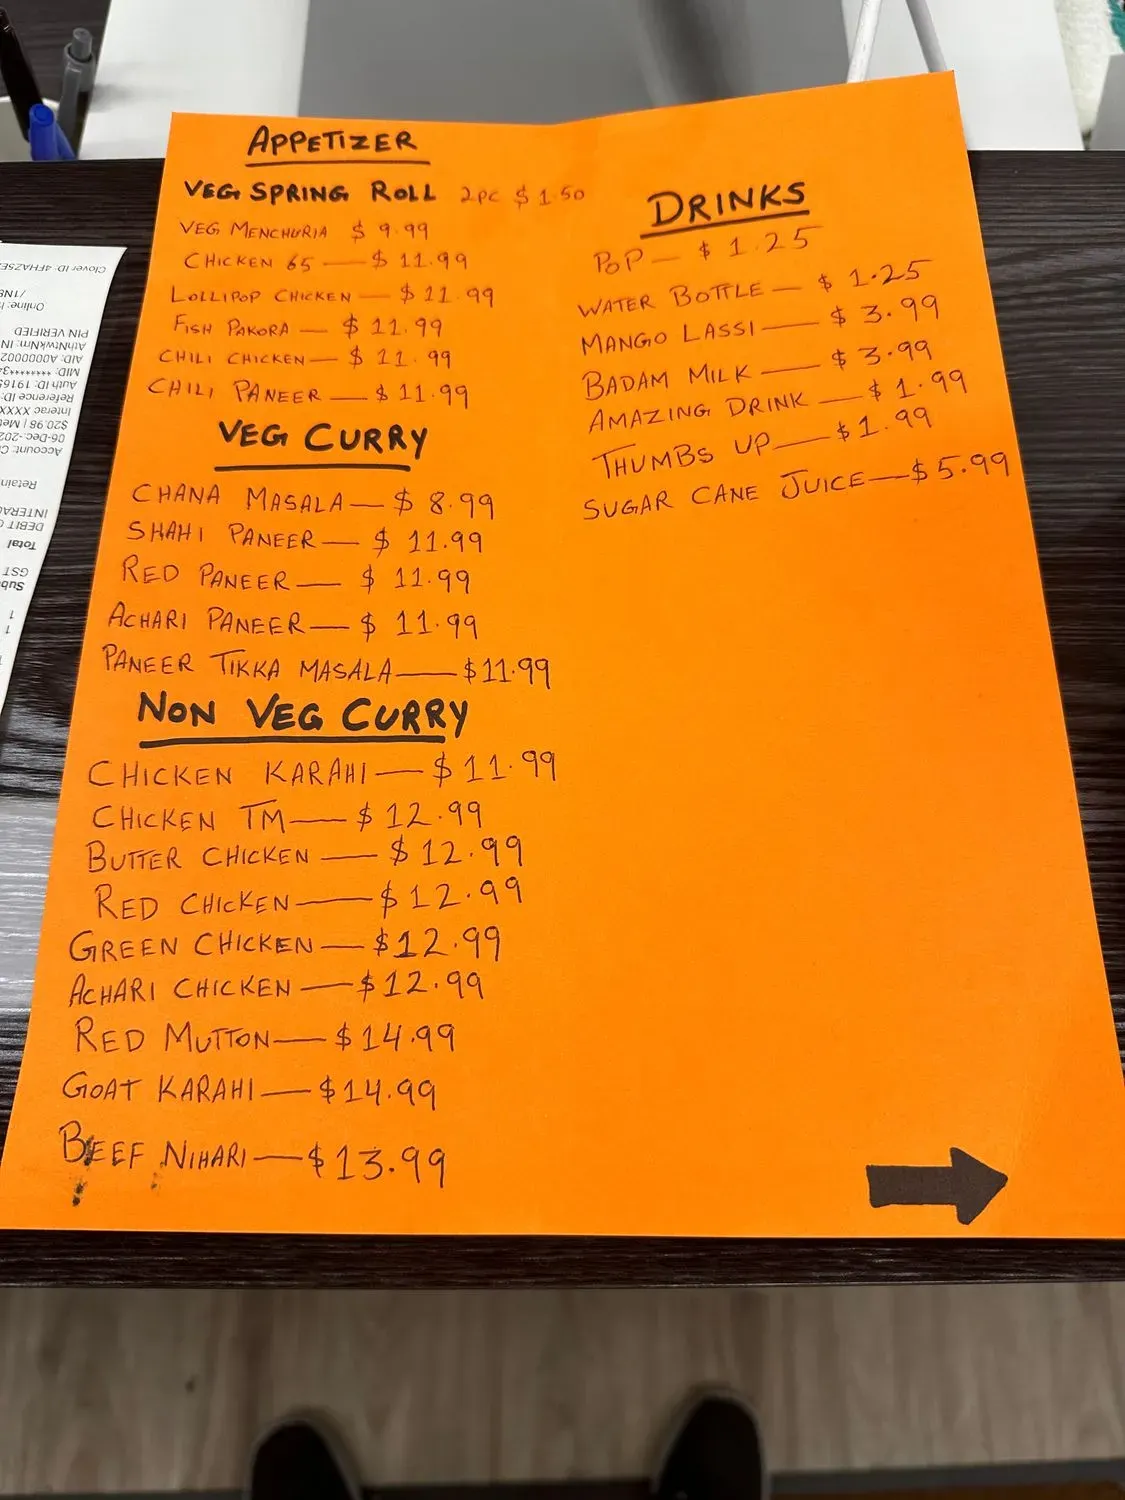 APPETIZER
VEG SPRING ROLL 2PC $1.50
VEG MENCHURIA $9.99
CHICKEN 65 — $11.99
LOLLIPOP CHICKEN — $11.99
FISH PAKORA — $11.99
CHILI CHICKEN — $11.99
CHILI PANEER — $11.99
VEG CURRY
CHANA MASALA — $8.99
SHAHI PANEER — $11.99
RED PANEER — $11.99
ACHARI PANEER — $11.99
PANEER TIKKA MASALA — $11.99
NON VEG CURRY
CHICKEN KARAHI — $11.99
CHICKEN TM — $12.99
BUTTER CHICKEN — $12.99
RED CHICKEN — $12.99
GREEN CHICKEN — $12.99
ACHARI CHICKEN — $12.99
RED MUTTON — $14.99
GOAT KARAHI — $14.99
BEEF NIHARI — $13.99
DRINKS
POP — $1.25
WATER BOTTLE — $1.25
MANGO LASSI — $3.99
BADAM MILK — $3.99
AMAZING DRINK — $1.99
THUMBS UP — $1.99
SUGAR CANE JUICE — $5.99
Total
GST
INTERAC
DEBIT
Retain
Account:
06-Dec-202
$20.98
Interac XXXX
Reference ID:
Auth ID: 1916
MID: ********
AID: A0000002
AthNtwkNm: IN
PIN VERIFIED
Online:
Clover ID: 4FHAZ5E